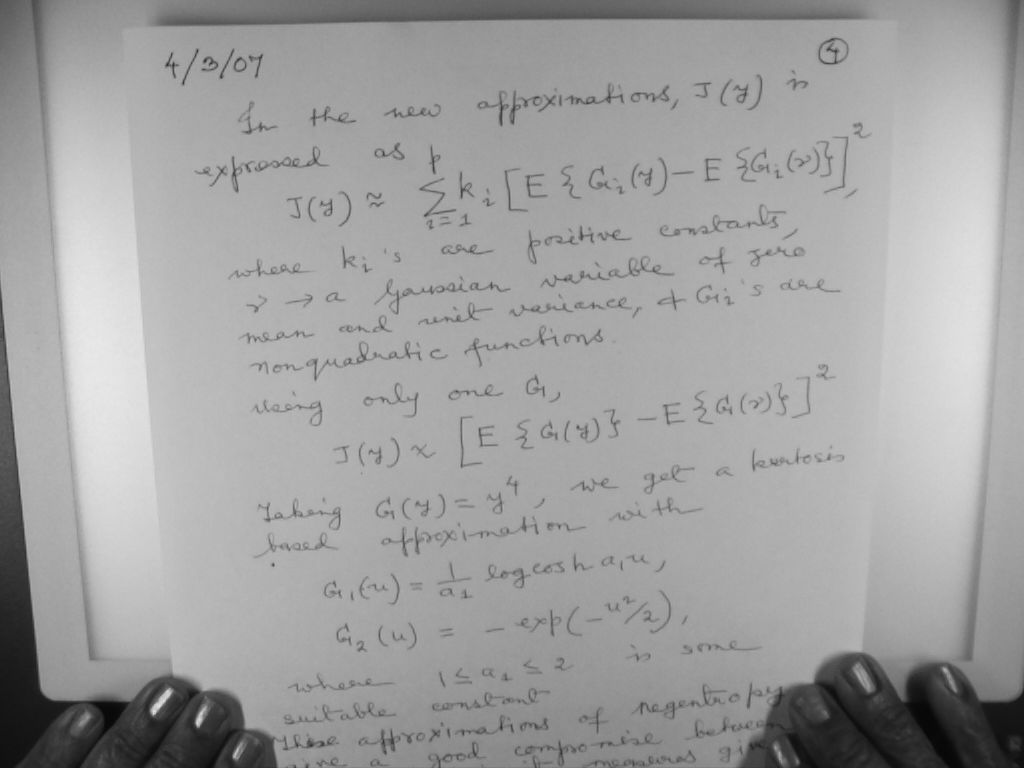 4/3/07
④
In the new approximations, J(y) is
expressed as
J(y) ≈ p∑i=1 ki [E {Gi(y) − E {Gi(ν)}]²,
where ki's are positive constants,
ν → a Gaussian variable of zero
mean and unit variance, & Gi's are
nonquadratic functions.
Using only one G,
J(y) ∝ [E {G(y)} − E {G(ν)}]²
Taking G(y) = y⁴, we get a kurtosis
based approximation with
G₁(u) = 1/a₁ log cosh a₁u,
G₂(u) = − exp(−u²/2),
where 1 ≤ a₁ ≤ 2 is some
suitable constant
These approximations of negentropy
give a good compromise between
measures